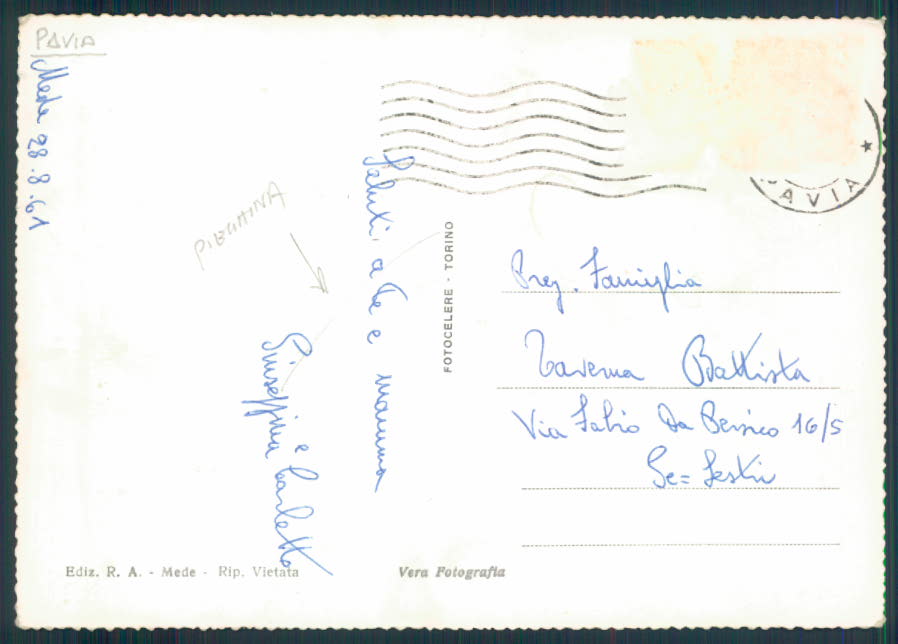 PAVIA
Mede 28.8.61
Saluti, a te e mamma
Giuseppina e Carletto
PIECHINA
FOTOCELERE - TORINO
PAVIA
Preg. Famiglia
Taverna Battista
Via Fabio Da Persico 16/5
Ge = Sestri
Ediz. R. A. - Mede - Rip. Vietata
Vera Fotografia